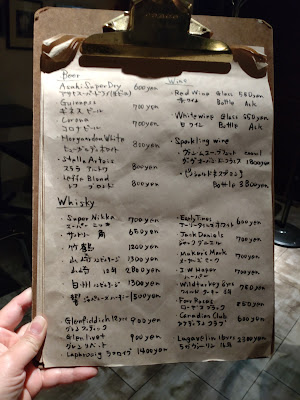 Beer
Asahi Super Dry 600yen
アサヒスーパードライ
Guinness 700yen
ギネスビール
Corona 700yen
コロナビール
Hoegaarden White 800yen
ヒューガルデンホワイト
Stella Artois 800yen
ステラ アルトワ
Leffe Blond 800yen
レフ ブロンド
Wine
Red Wine Glass 550yen
赤ワイン Bottle Ask
White wine Glass 550yen
白ワイン Bottle Ask
Sparkling wine
1800yen
Bottle 3800yen
Whisky
Super Nikka 700yen
スーパーニッカ
サントリー 角 650yen
竹鶴 1200yen
山崎 1300yen
山崎 12年 2800yen
白州 1300yen
響 1500yen
Glenfiddich 12yrs 900yen
グレンフィディック
Glenlivet 900yen
グレンリベット
Laphroaig ラフロイグ 1400yen
Early Times 600yen
アーリータイムズ
Jack Daniels 700yen
ジャックダニエル
Maker's Mark 700yen
メーカーズマーク
I W Harper 700yen
ハーパー
Wild turkey 8yrs
ワイルドターキー 8年
Four Roses
フォアローゼズ
Canadian Club 600yen
カナディアンクラブ
Lagavulin 16yrs
ラガヴーリン 16年